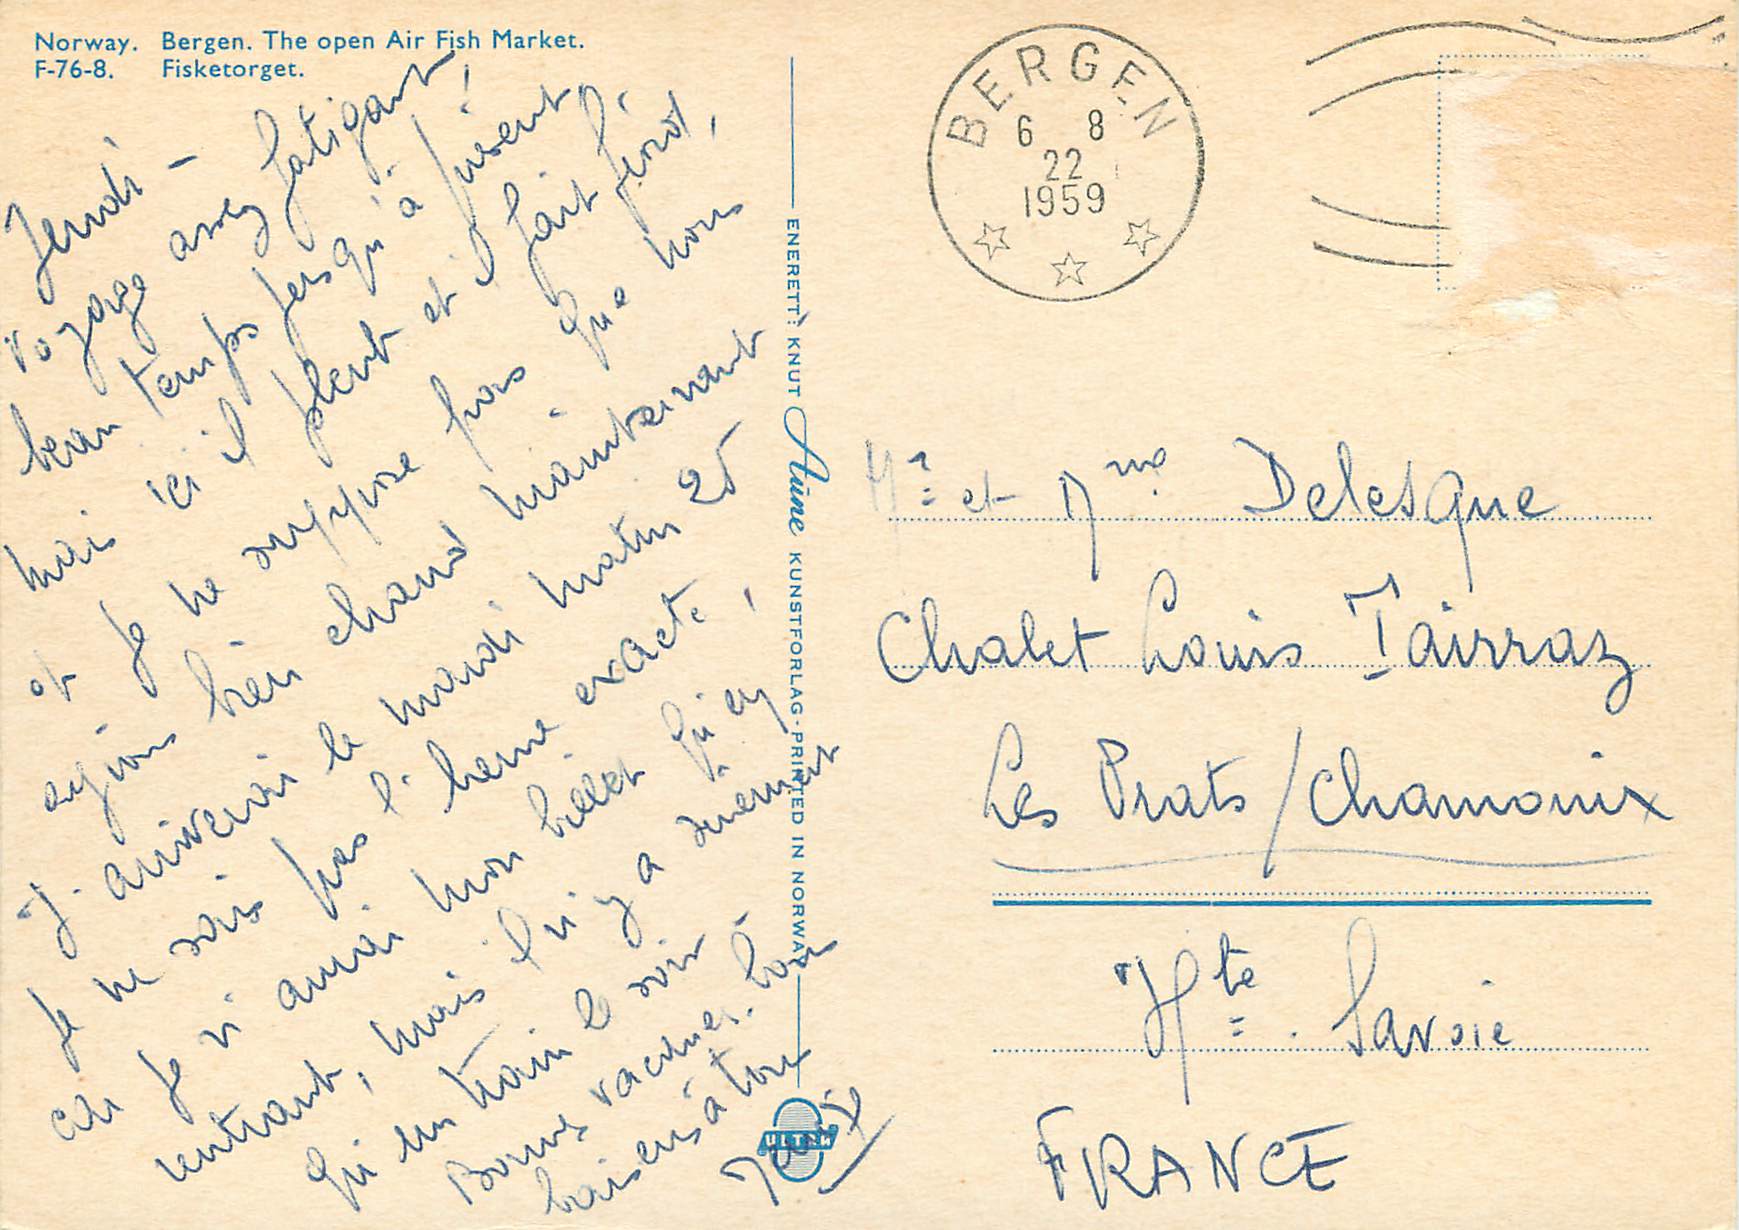 Norway. Bergen. The open Air Fish Market.
F-76-8. Fisketorget.
Jeudi -
Voyage assez fatigant,
beau temps jusqu'à présent,
mais ici il pleut et il fait froid,
et je ne suppose pas que nous
ayions bien chaud maintenant
J'arriverai le mardi matin 25
Je ne sais pas l'heure exacte,
car je n'aurai mon billet qu'en
rentrant, mais il n'y a sûrement
qu'un train le soir
Bonnes vacances. Bons
baisers à tous
ENERETT: KNUT Aune KUNSTFORLAG · PRINTED IN NORWAY
ULTRA
BERGEN
6 8
22
1959
Mr et Mme Delesque
Chalet Louis Tairraz
Les Prats / Chamonix
Hte. Savoie
FRANCE